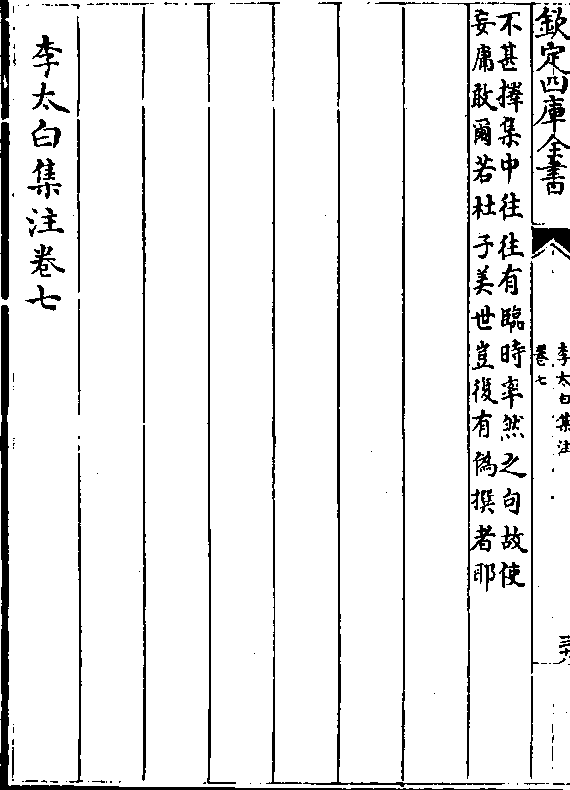 欽定四庫全書
李太白集注
卷七
不甚擇集中往往有臨時率然之句故使
妄庸敢爾若杜子美世豈復有偽撰者耶
李太白集注卷七